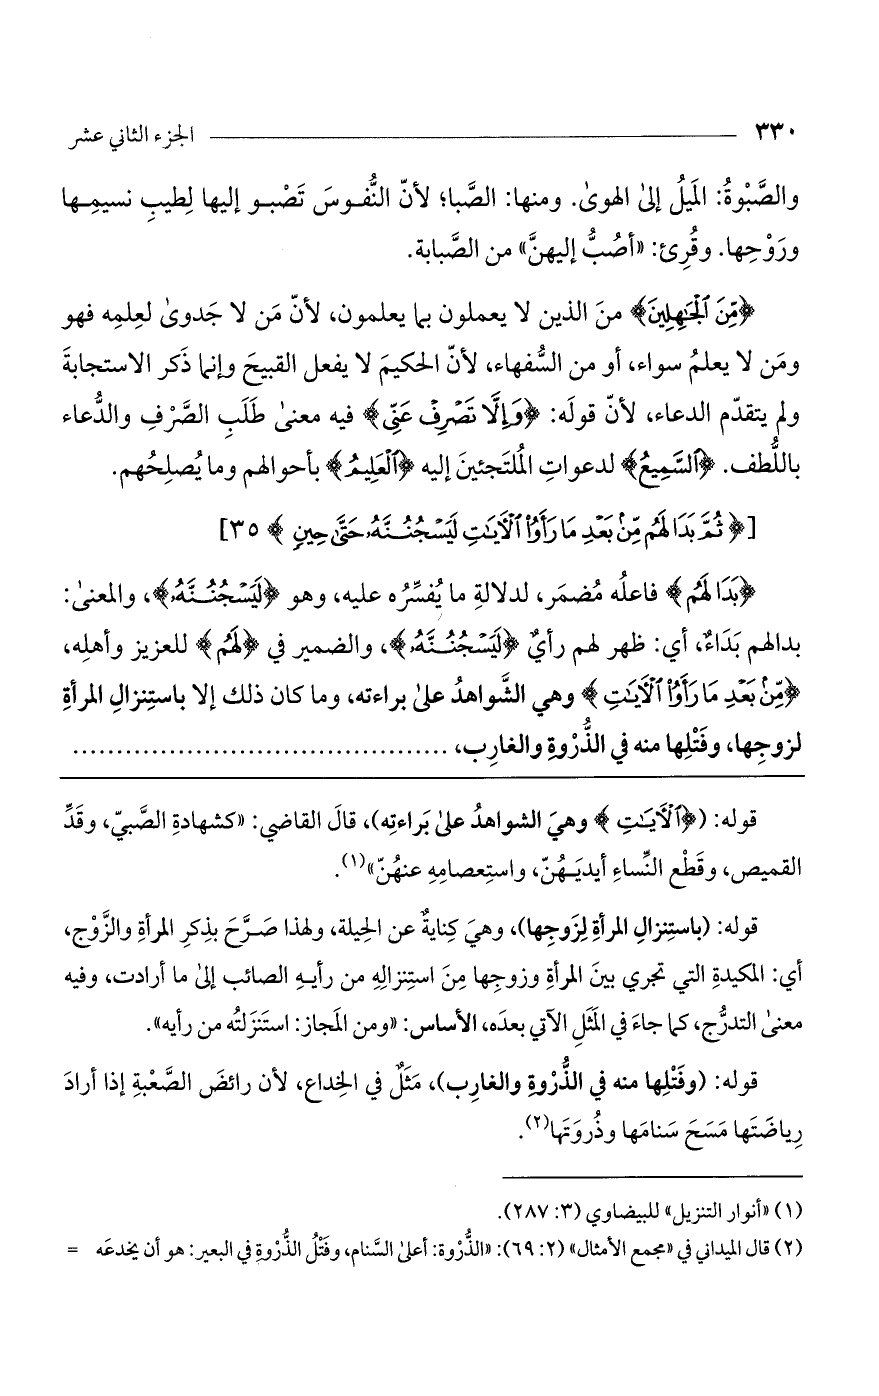 ٣٣٠ ــــــــــــــــــــــــــــــــ الجزء الثاني عشر
والصَّبْوةُ: المَيلُ إلىٰ الهوىٰ. ومنها: الصَّبا؛ لأنّ النُّفوسَ تَصْبو إليها لِطيبِ نسيمِها
ورَوْحِها. وقُرِئ: «أَصُبُّ إليهنَّ» من الصَّبابة.
﴿مِّنَ ٱلْجَٰهِلِينَ﴾ منَ الذين لا يعملون بما يعلمون، لأنّ مَن لا جَدوىٰ لعِلمِه فهو
ومَن لا يعلمُ سواء، أو من السُّفهاء، لأنّ الحكيمَ لا يفعل القبيحَ وإنما ذَكر الاستجابةَ
ولم يتقدّم الدعاء، لأنّ قولَه: ﴿وَإِلَّا تَصْرِفْ عَنِّى﴾ فيه معنىٰ طَلَبِ الصَّرْفِ والدُّعاء
باللُّطف. ﴿ٱلسَّمِيعُ﴾ لدعواتِ المُلتَجئينَ إليه ﴿ٱلْعَلِيمُ﴾ بأحوالهم وما يُصلِحُهم.
[﴿ثُمَّ بَدَا لَهُم مِّنۢ بَعْدِ مَا رَأَوُا۟ ٱلْـَٔايَٰتِ لَيَسْجُنُنَّهُۥ حَتَّىٰ حِينٍ﴾ ٣٥]
﴿بَدَا لَهُم﴾ فاعلُه مُضمَر، لدلالةِ ما يُفسِّرُه عليه، وهو ﴿لَيَسْجُنُنَّهُۥ﴾، والمعنىٰ:
بدالهم بَدَاءٌ، أي: ظهر لهم رأيٌ ﴿لَيَسْجُنُنَّهُۥ﴾، والضمير في ﴿لَهُم﴾ للعزيز وأهلِه،
﴿مِّنۢ بَعْدِ مَا رَأَوُا۟ ٱلْـَٔايَٰتِ﴾ وهي الشَّواهدُ علىٰ براءته، وما كان ذلك إلا باستِنزالِ المرأةِ
لزوجِها، وفَتْلِها منه في الذُّرْوةِ والغارِب، ..........................................
قوله: (﴿ٱلْـَٔايَٰتِ﴾ وهيَ الشواهدُ علىٰ بَراءتِه)، قالَ القاضي: «كشهادةِ الصَّبيّ، وقَدِّ
القميص، وقَطْعِ النِّساءِ أيديَـهُنّ، واستِعصامِهِ عنهُنّ»(١).
قوله: (باستِنزالِ المرأةِ لِزَوجِها)، وهيَ كِنايةٌ عن الحِيلة، ولهذا صَرَّحَ بذِكرِ المرأةِ والزَّوْج،
أي: المكيدةِ التي تجري بينَ المرأةِ وزوجِها مِنَ استنزالِهِ من رأيـهِ الصائب إلىٰ ما أرادت، وفيه
معنىٰ التدرُّج، كما جاءَ في المَثَلِ الآتي بعدَه، الأساس: «ومن المَجاز: استَنزَلتُه من رأيه».
قوله: (وفَتْلِها منه في الذُّروةِ والغارِب)، مَثَلٌ في الخِداع، لأن رائضَ الصَّعْبةِ إذا أرادَ
رِياضَتَها مَسَحَ سَنامَها وذُروَتَها(٢).
(١) «أنوار التنزيل» للبيضاوي (٣: ٢٨٧).
(٢) قال الميداني في «مجمع الأمثال» (٢: ٦٩): «الذُّرْوة: أعلىٰ السَّنام، وفَتْلُ الذُّرْوةِ في البعير: هو أن يخدعَه =